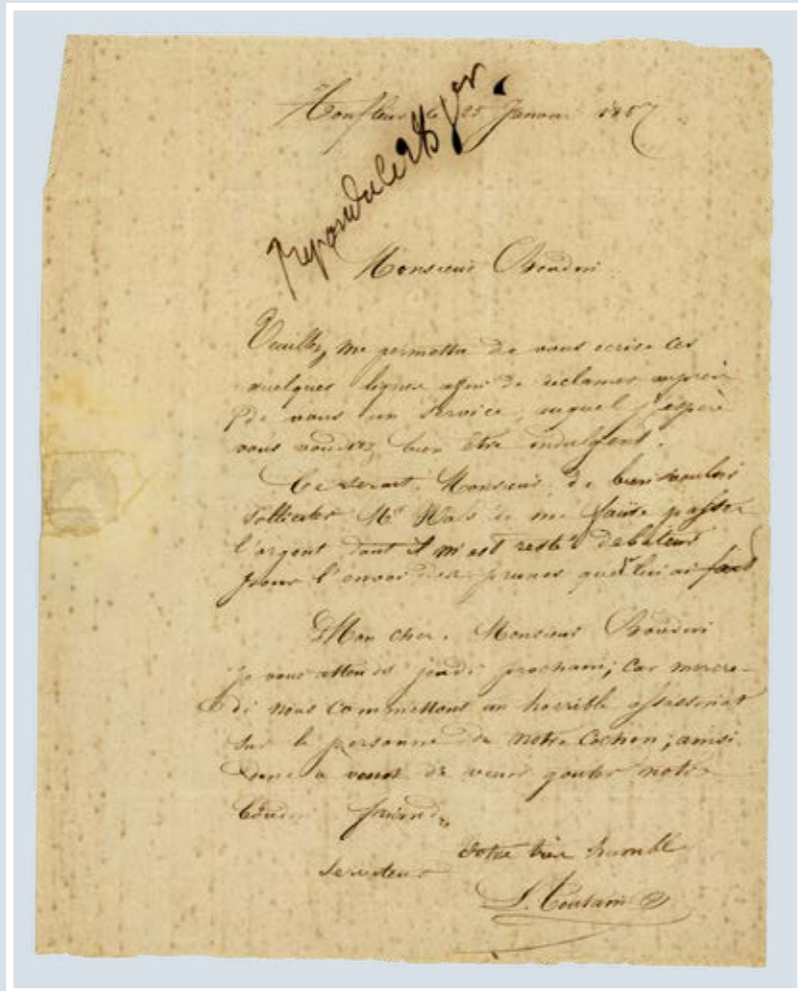 Honfleur le 25 Janvier 1857
répondu le 28 jer
Monsieur Boudin
Veuillez me permettre de vous ecrire ces
quelques lignes affin de réclamer auprès
de vous un service, auquel j'espère
vous voudrez bien être indulgent.
Ce serait, Monsieur, de bien vouloir
solliciter Mr de me faire passer
l'argent dont il m'est resté debiteur
pour l'envoi des prunes que lui ai fait
Mon cher Monsieur Boudin
je vous attends jeudi prochain; car mercre-
di nous commettons un horrible assassinat
sur la personne de notre Cochon; ainsi
donc a vous de venir gouter notre
boudin
Votre bien humble
Serviteur